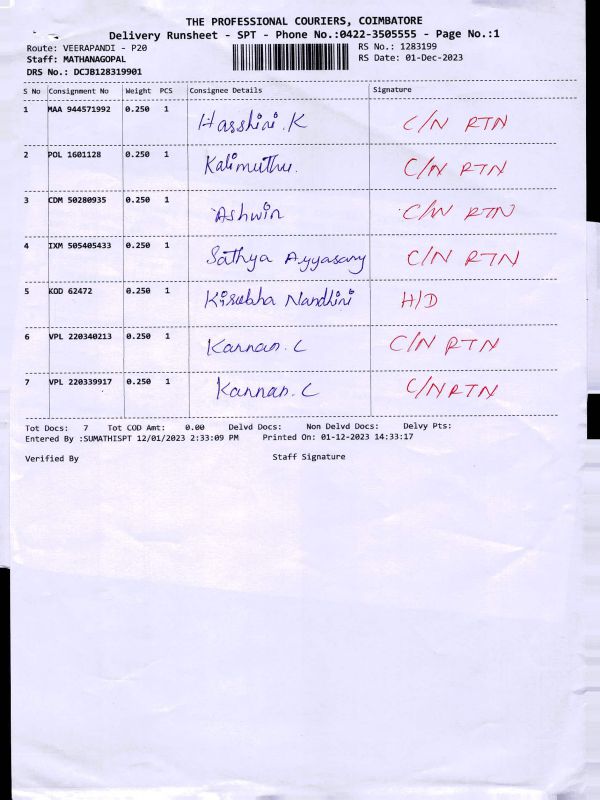 THE PROFESSIONAL COURIERS, COIMBATORE
Delivery Runsheet - SPT - Phone No.:0422-3505555 - Page No.:1
Route: VEERAPANDI - P20 RS No.: 1283199
Staff: MATHANAGOPAL RS Date: 01-Dec-2023
DRS No.: DCJB128319901
S No Consignment No Weight PCS Consignee Details Signature
1 MAA 944571992 0.250 1 Hasshini.K C/N RTN
2 POL 1601128 0.250 1 Kalimuthu. C/N RTN
3 CDM 50280935 0.250 1 Ashwin C/N RTN
4 IXM 505405433 0.250 1 Sathya Ayyasamy C/N RTN
5 KOD 62472 0.250 1 Nandhini H/D
6 VPL 220340213 0.250 1 Kannan.C C/N RTN
7 VPL 220339917 0.250 1 Kannan.C C/N RTN
Tot Docs: 7 Tot COD Amt: 0.00 Delvd Docs: Non Delvd Docs: Delvy Pts:
Entered By :SUMATHISPT 12/01/2023 2:33:09 PM Printed On: 01-12-2023 14:33:17
Verified By Staff Signature